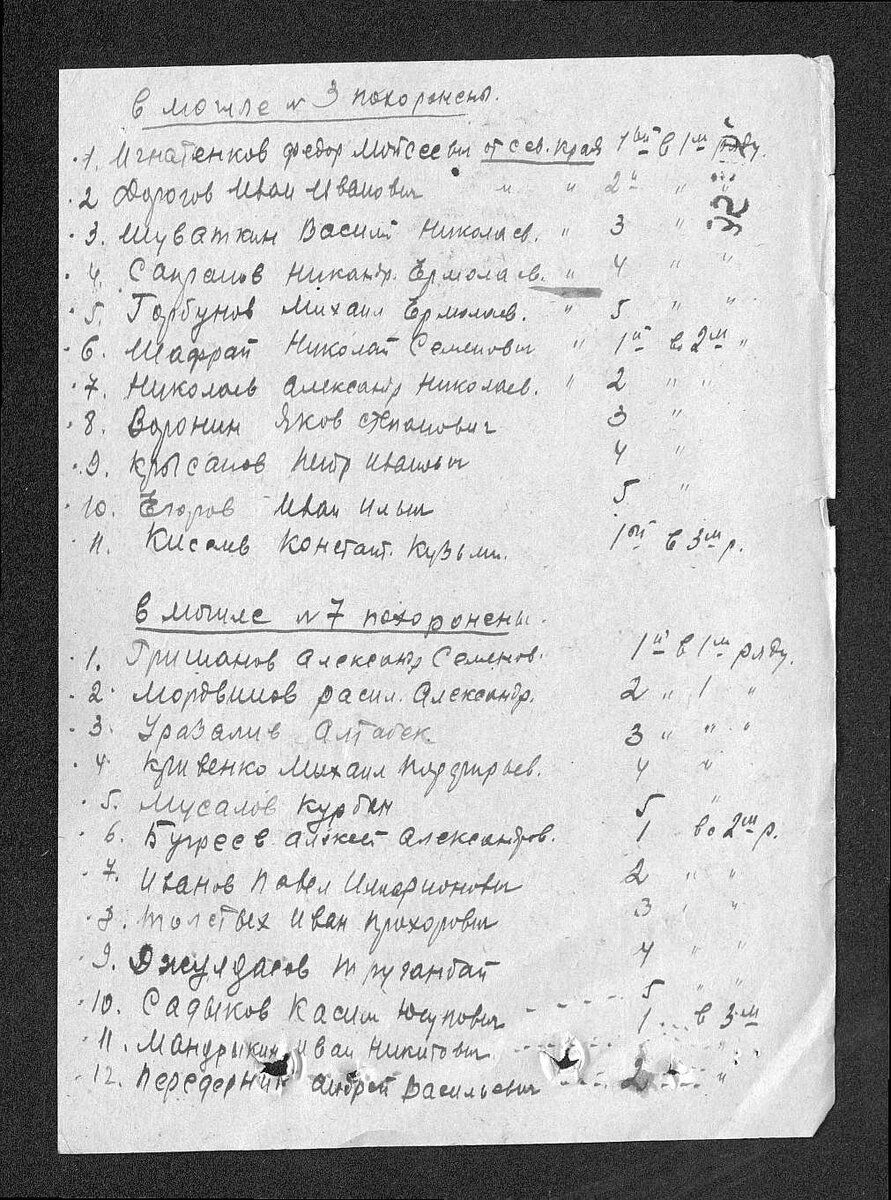 в могиле № 3 похоронены.
1. Игнатенков Федор Мойсееви от сев. края 1ый в 1м ряду.
2 Дорогов Иван Иванович " " 2й " "
3. Шуваткин Василий Николаев. " 3 " "
4. Сапранов Никандр. Ермолаев. " 4 " "
5. Горбунов Михаил Ермолаев. " 5 " "
6. Шафрай Николай Семенович " 1й во 2м "
7. Николаев Александр Николаев. " 2 " "
8. Воронин Яков Степанович 3 "
9. Крысанов Петр Иванович 4 "
10. Егоров Иван Ильич 5 "
11. Киселев Констант. Кузьми. 1ый в 3м р.
в могиле № 7 похоронены.
1. Гришанов Александр Семенов. 1й в 1м ряду.
2. Мордвинов Васил. Александр. 2 " 1 "
3. Уразалив Алтабек 3 " " "
4. Кривенко Михаил 4 "
5. Мусалов Курбан 5 "
6. Бугреев Алексей Александров. 1 во 2м р.
7. Иванов Павел Илларионович 2 " "
8. Толстых Иван Прохорович 3 " "
9. Джулдасов Труганбай 4 " "
10. Садыков Касим Юсупович 5 " "
11. Мандрыкин Иван Никитович 1 в 3м
12. Передерник Андрей Васильевич 2 "